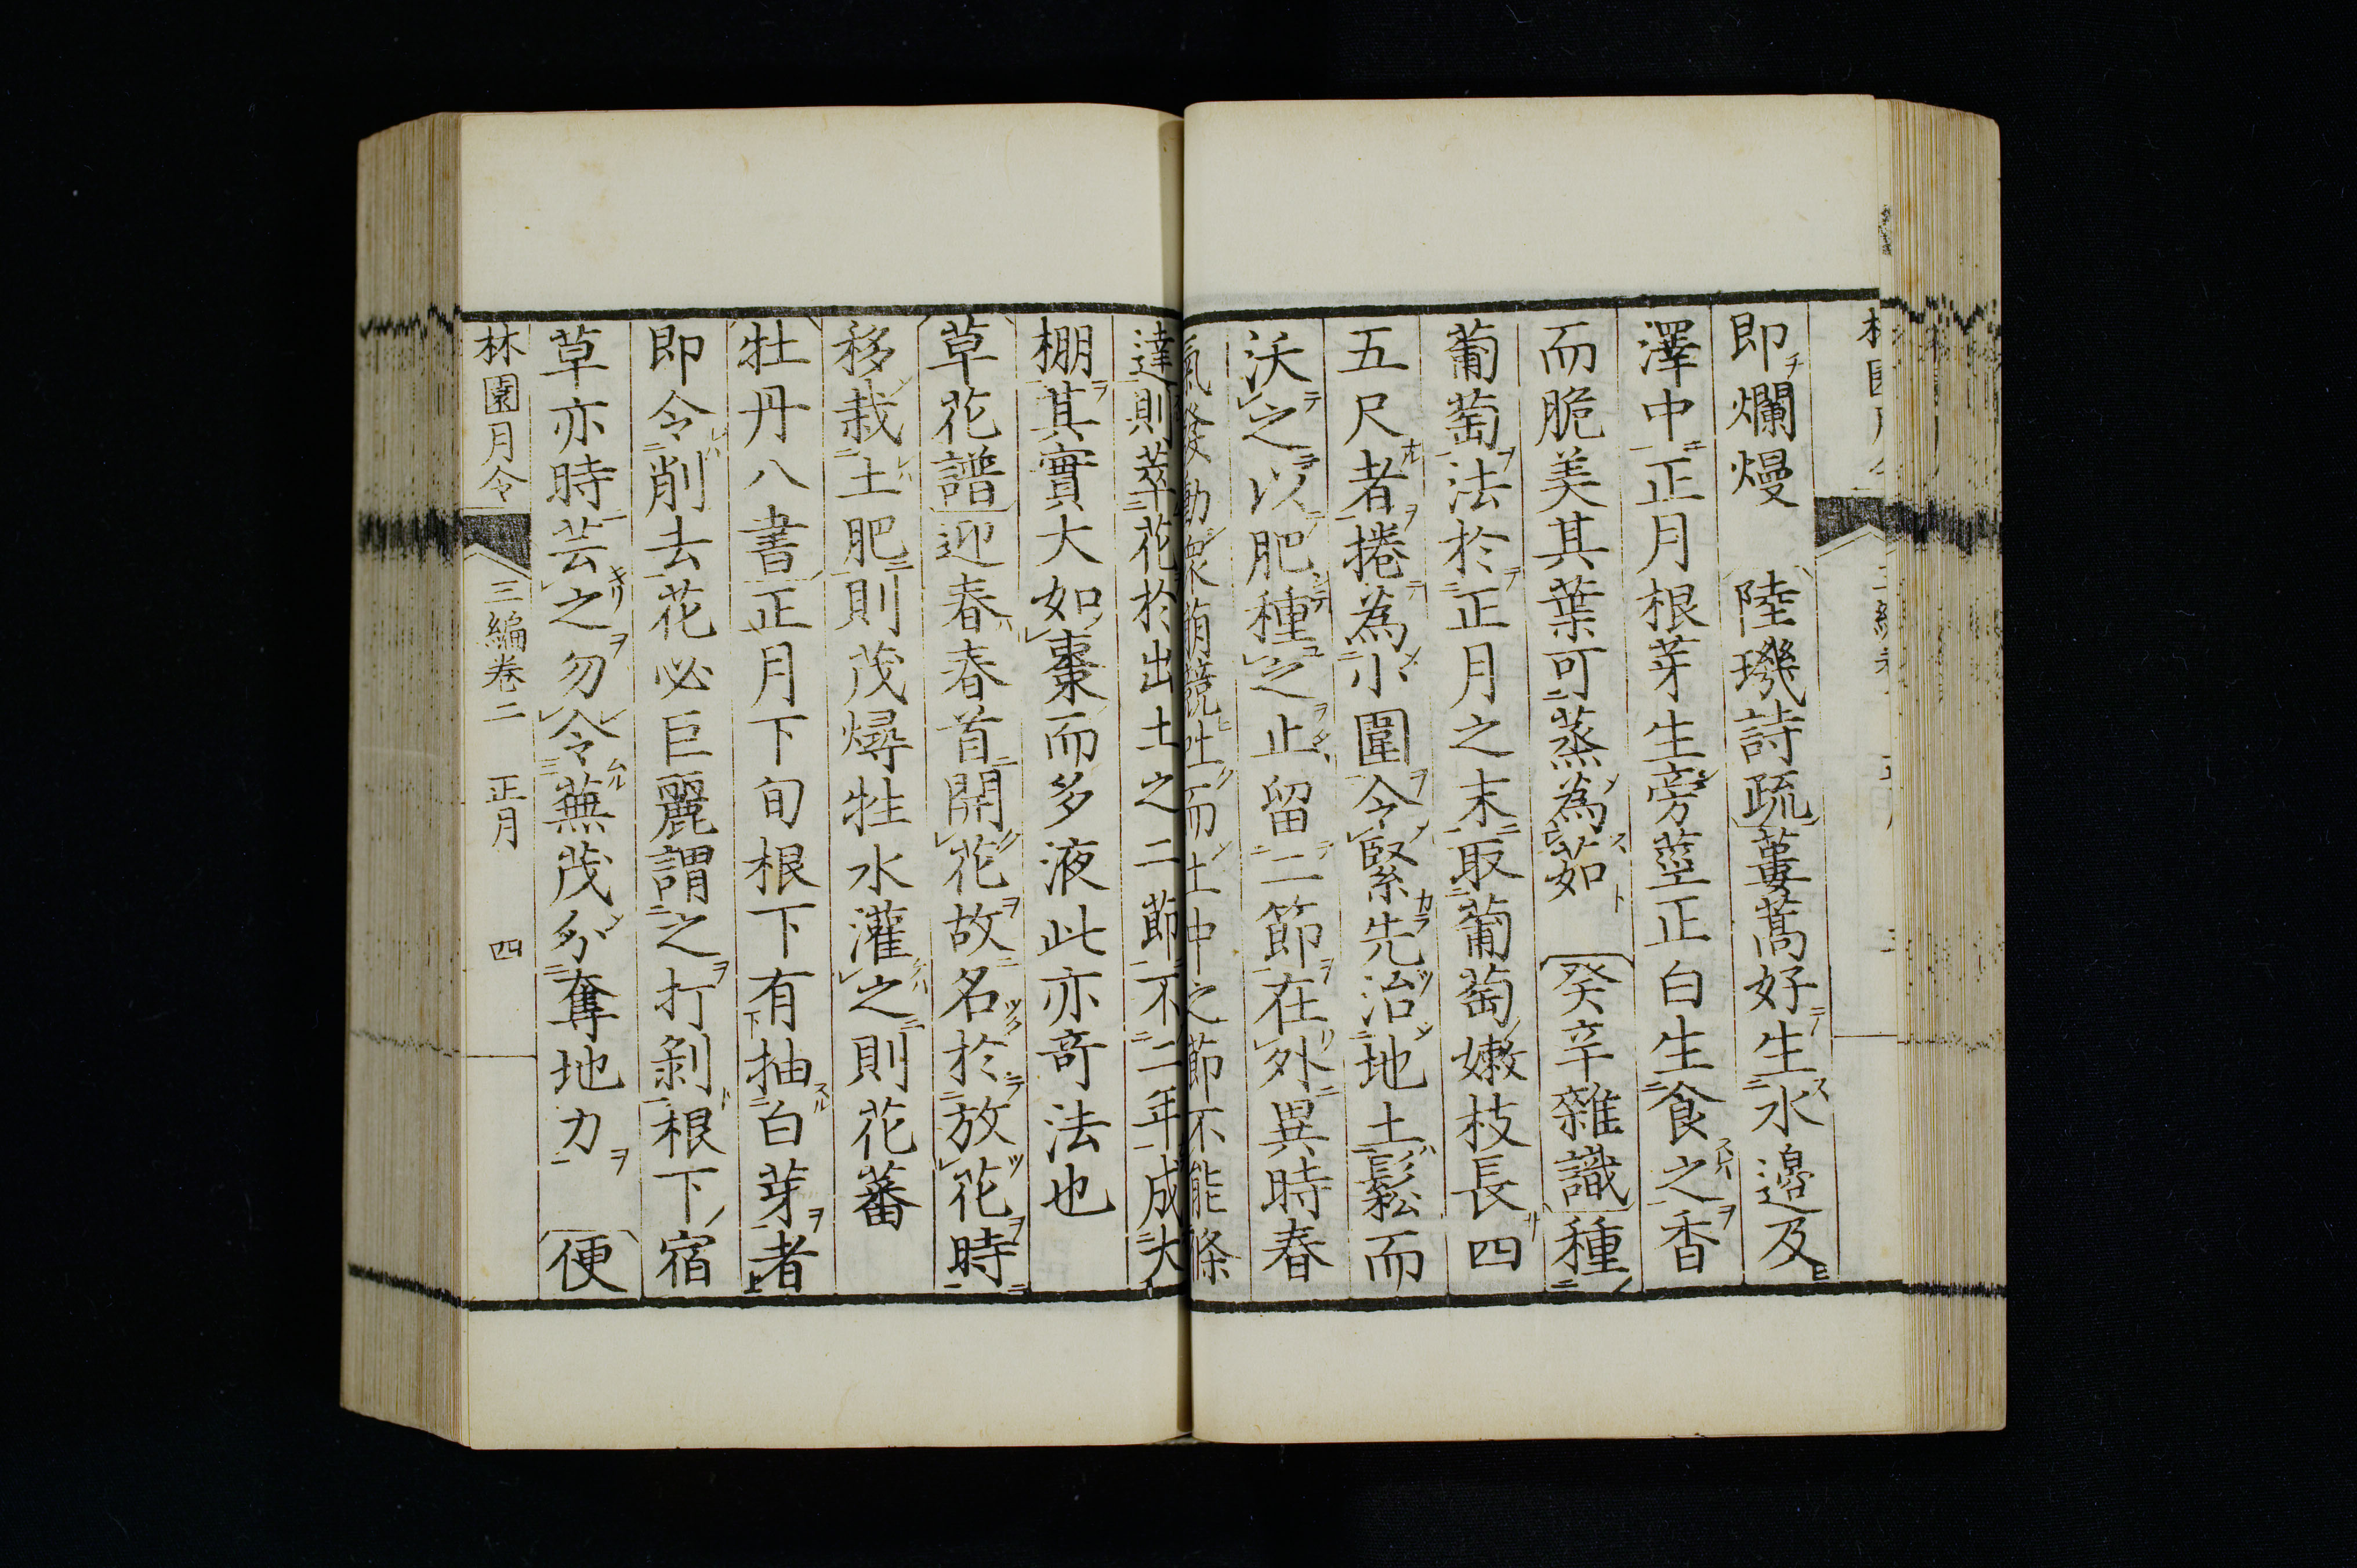 即爛熳 陸璣詩疏蔞蒿好生水邊及
澤中正月根芽生旁莖正白生食之香
而脆美其葉可蒸為茹 癸辛雜識種
葡萄法於正月之末取葡萄嫩枝長四
五尺者捲為小圍令緊先治地土鬆而
沃之以肥種之止留二節在外異時春
氣發動衆萌競吐而土中之節不能條
達則萃花於出土之二節不二年成大
棚其實大如棗而多液此亦奇法也
草花譜迎春春首開花故名於放花時
移栽土肥則茂燖牲水灌之則花蕃
牡丹八書正月下旬根下有抽白芽者
即令削去花必巨麗謂之打剝根下宿
草亦時芸之勿令蕪茂分奪地力 便
林園月令 三編卷二 正月 四